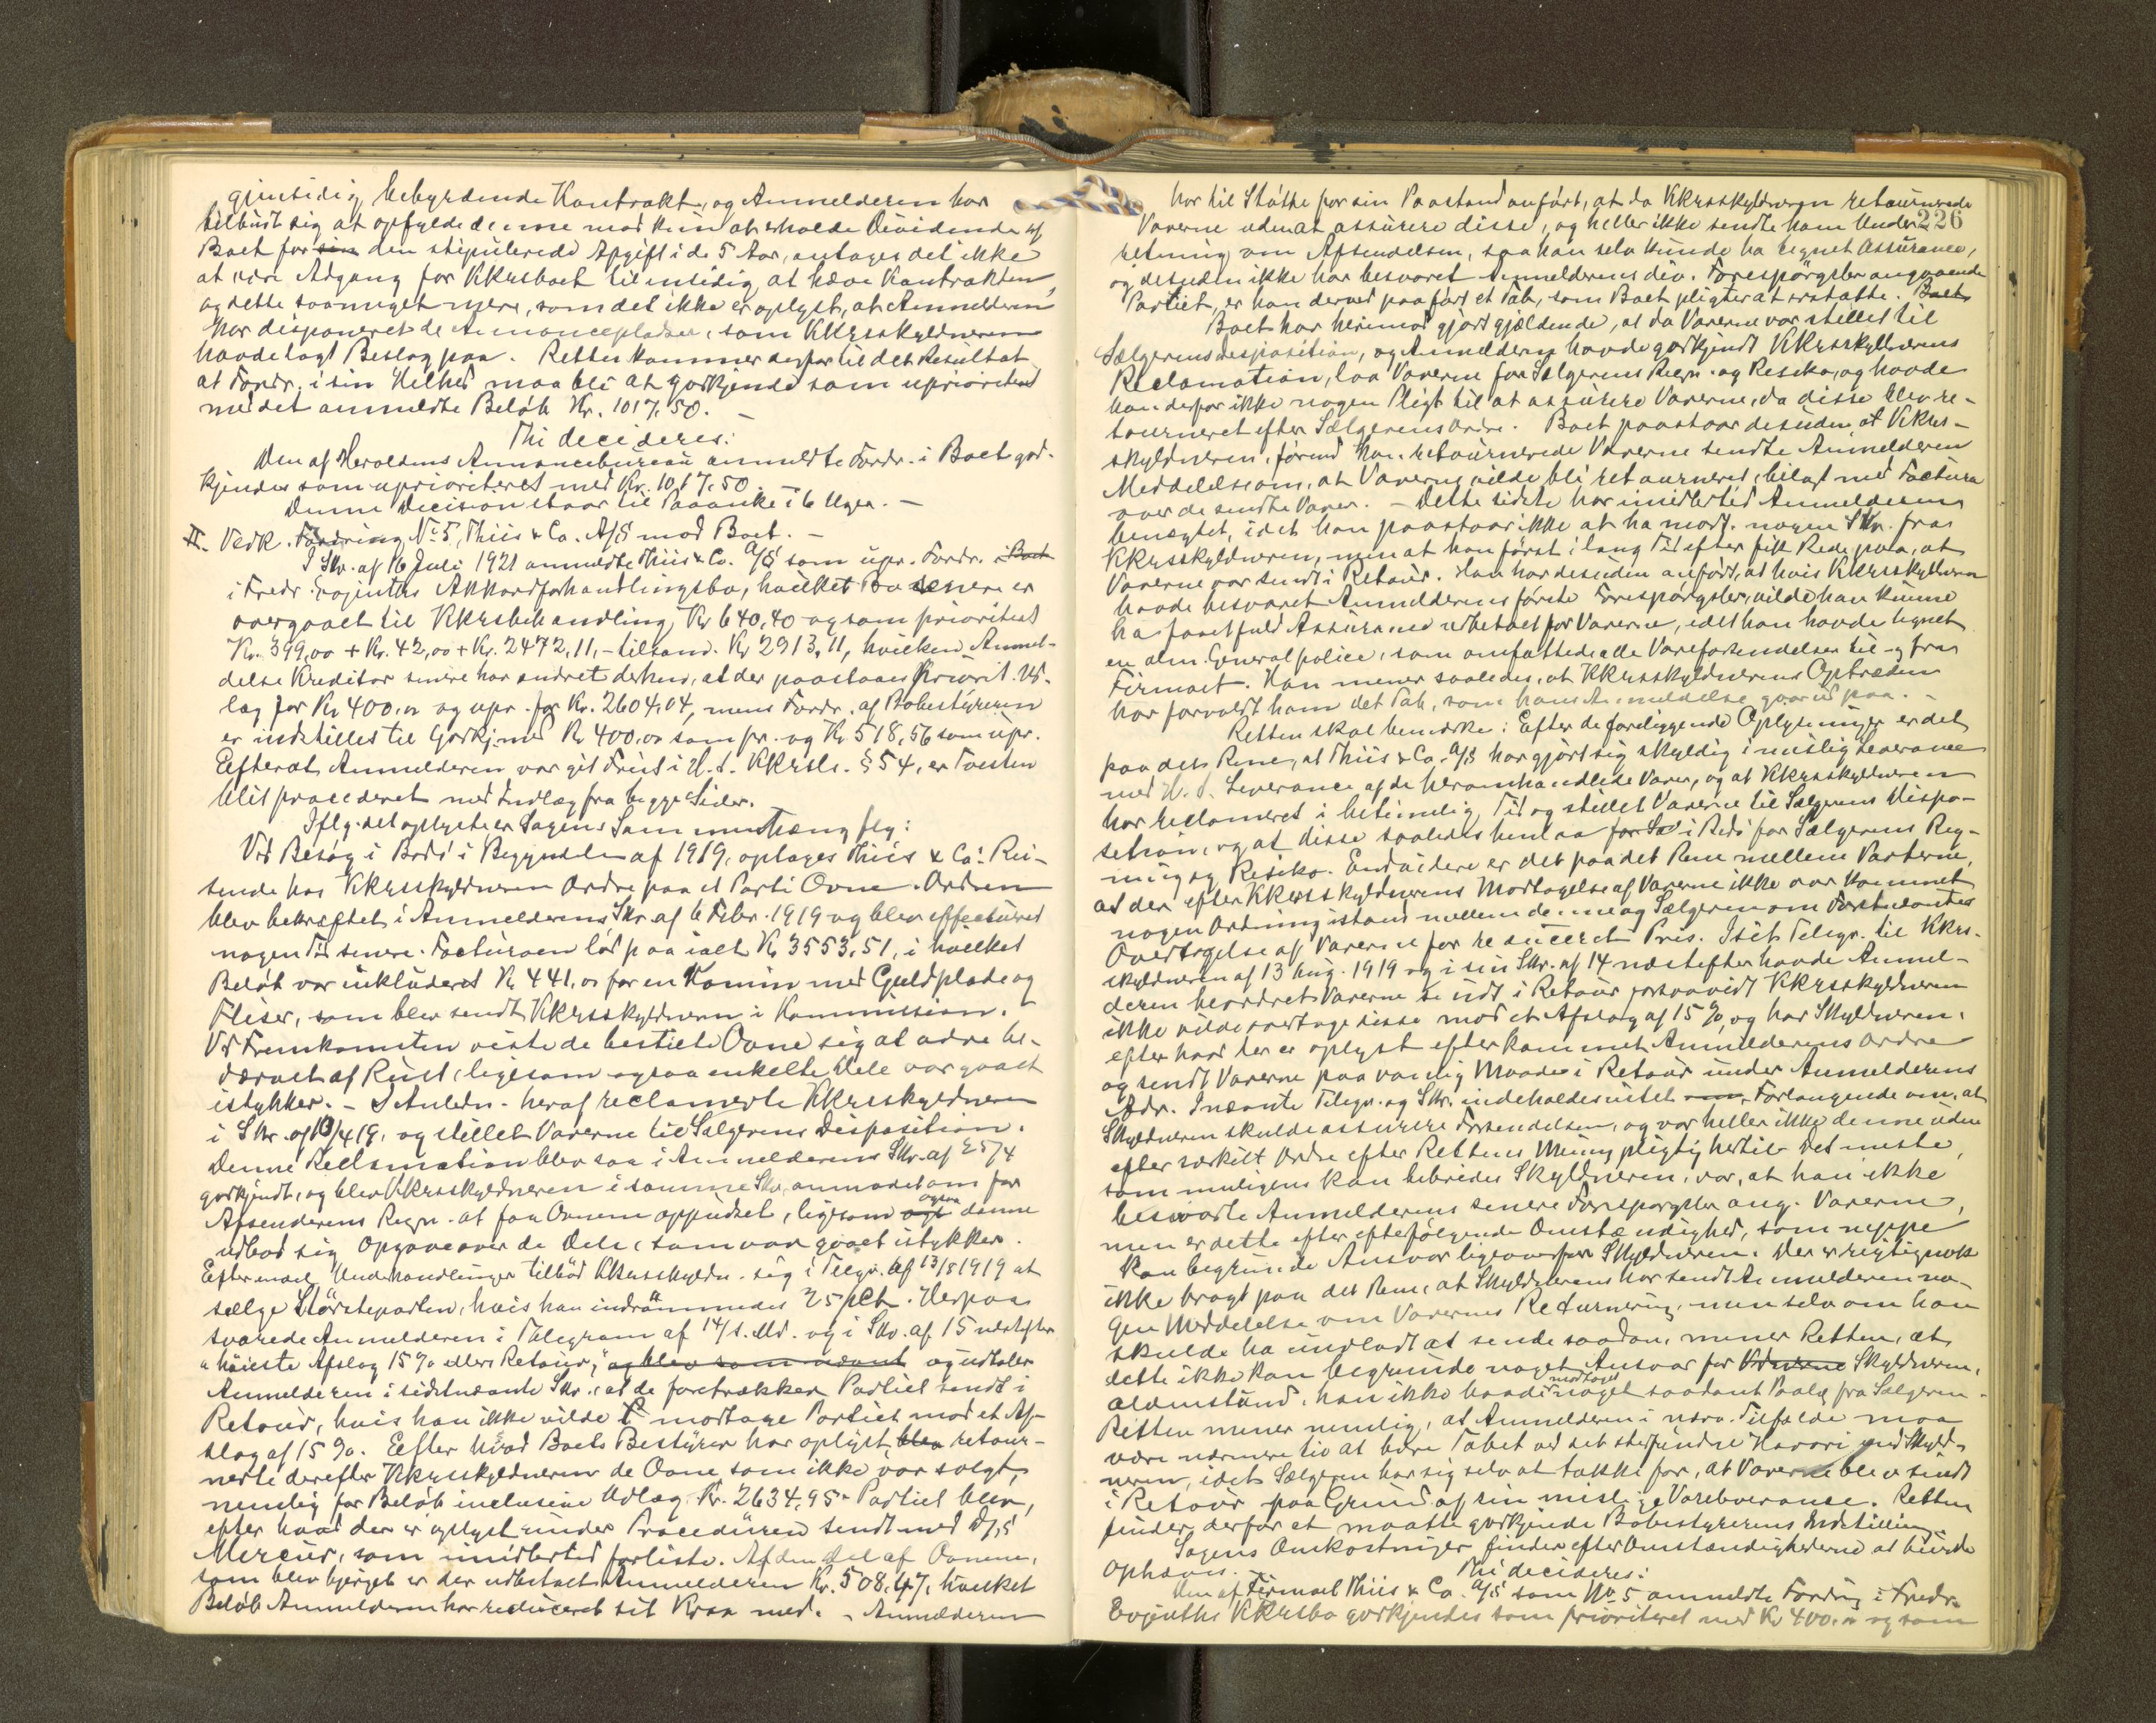 gjensidig bebyrdende Kontrakt, og Anmelderen har
tilbudt sig at opfylde denne mod kun at erholde Dividende af
Boet for sin den stipulerede Afgift i de 5 Aar, antages det ikke
at være Adgang for Kkrsboet til ensidig at hæve Kontrakten,
og dette saameget mere, som det ikke er oplyst, at Anmelderen
har disponeret de Annonceplader, som Kkrsskyldneren
havde lagt Beslag paa. Retten kommer derfor til det Resultat
at Fordr. i sin Helhed maa bli at godkjende som uprioriteret
med det anmeldte Beløb Kr. 1017,50. –
Thi decideres:
Den af Heroldens Annoncebureau anmeldte Fordr. i Boet god-
kjendes som uprioriteret med Kr. 1017,50.
Denne Decision staar til Paaanke i 6 Uger. –
II. Vedk. Fordring No 5, Thiis & Co. A/S mod Boet. –
I Skr. af 16 Juli 1921 anmeldte Thiis & Co. A/S som upr. Fordr. i Boet
i Fredr. Evjenths Akkordforhandlingsbo, hvilket Bo senere er
overgaaet til Kkrsbehandling, Kr 640,40 og som prioritert
Kr. 399,00 + Kr. 42,00 + Kr. 2472,11, – tilsam. Kr 2913,11, hvilken Anmel-
delse Kreditor senere har endret derhen, at der paastaaes priorit. Ud-
læg for Kr 400,00 og upr. for Kr. 2604,04, mens Fordr. af Bobestyreren
er indstillet til Godkj. med Kr 400,00 som pr. og Kr 518,56 som upr.
Efterat Anmelderen var git Frist i H. t. Kkrsl. § 54, er Tvisten
blit procederet med Indlæg fra begge Sider.
Iflg. det oplyste er Sagens Sammenhæng flg:
Ved Besøg i Bodø i Begyndelsen af 1919, optages Thiis & Co's Rei-
sende hos Kkrsskyldneren Ordre paa et Parti Ovne. Ordren
blev bekræftet i Anmelderens Skr. af 6 Febr. 1919 og blev effectueret
nogen Tid senere. Facturaen lød paa ialt Kr 3553,51, i hvilket
Beløb var inkluderet Kr 441,00 for en Kamin med Guldplade og
Fliser, som blev sendt Kkrsskyldneren i Kommission.
Ved Fremkomsten viste de bestilte Ovne sig at være be-
dærvet af Rust, ligesom ogsaa enkelte Dele var gaaet
istykker. – I Anledn. heraf reclamerte Kkrsskyldneren
i Skr. af 13/4 19, og stillet Varerne til Sælgerens Disposition.
Denne Reclamation blev saa i Anmelderens Skr. af 25/4
godkjendt, og blev Kkrsskyldneren i samme Skr. anmodet om for
Afsenderens Regn. at faa Ovnene oppudset, ligesom ogsaa denne
udbad sig Opgave over de Dele, som var gaaet istykker.
Efter endel Underhandlinger tilbød Kkrsskyldn. sig i Telegr. af 13/8 1919 at
sælge Størsteparten, hvis han indrømmedes 25 pCt. Herpaa
svarede Anmelderen i Telegram af 14/s. Md. og i Skr. af 15 næstefter
"høieste Afslag 15 % ellers Retour", og blev som nævnt og udtaler
Anmelderen i sidstnævnte Skr., at de foretrækker Partiet sendt i
Retour, hvis han ikke vilde modtage Partiet mod et Af-
slag af 15 %. Efter hvad Boets Bestyrer har oplyst, blev retour-
nerte derefter Kkrsskyldneren de Ovne som ikke var solgt,
nemlig for Beløb inclusive Udlæg Kr. 2634,95. Partiet blev,
efter hvad der er oplyst under Proceduren sendt med D/S
Mercur, som imidlertid forliste. Af den Del af Ovnene,
som blev bjerget er der udbetalt Anmelderen Kr. 508,47, hvilket
Beløb Anmelderen har reduceret sit Krav med. – Anmelderen
226
har til Støtte for sin Paastand anført, at da Kkrsskyldneren retournerede
Varerne uden at assurere disse, og heller ikke sendte ham Under-
retning om Afsendelsen, saa han selv kunde ha tegnet Assurance,
og desuden ikke har besvaret Anmelderens div. Forespørgsler angaaende
Partiet, er han derved paaført et Tab, som Boet pligter at erstatte. Boet
Boet har herimod gjort gjældende, at da Varerne var stillet til
Sælgerens Disposition, og Anmelderen havde godkjendt Kkrsskyldnerens
Reclamation, laa Varerne for Sælgerens Regn. og Resiko, og havde
han derfor ikke nogen Pligt til at assurere Varerne, da disse blev re-
tourneret efter Sælgerens Ordre. Boet paastaar desuden, at Kkrs-
skyldneren, førend han retournerede Varerne sendte Anmelderen
Meddelelse om, at Varerne vilde bli retourneret, bilagt med Factura
over de sendte Varer. – Dette sidste har imidlertid Anmelderen
benægtet, idet han paastaar ikke at ha modt. nogen Skr. fra
Kkrsskyldneren, men at han først i lang Tid efter fik Rede paa, at
Varerne var sendt i Retour. Han har desuden anført, at hvis Kkrsskyldneren
havde besvaret Anmelderens første Forespørgsler, vilde han kunne
ha faaet fuld Assurance udbetalt for Varerne, idet han havde tegnet
en alm. Generalpolice, som omfattede alle Vareforsendelser til og fra
Firmaet. Han mener saaledes, at Kkrsskyldnerens Optræden
har forvoldt ham det Tab, som hans Anmeldelse gaar ud paa. –
Retten skal bemærke: Efter de foreliggende Oplysninger er det
paa det Rene, at Thiis & Co. A/S har gjort sig skyldig i mislig Leverance
med H. t. Leverance af de heromhandlede Varer, og at Kkrsskyldneren
har reclameret i betimelig Tid og stillet Varerne til Sælgerens Dispo-
sition, og at disse saaledes henlaa for Sæ i Bodø for Sælgerens Reg-
ning og Resiko. Endvidere er det paa det Rene mellem Parterne,
at der efter Kkrsskyldnerens Modtagelse af Varerne ikke var kommet
nogen Ordning istand mellem denne og Sælgeren om Førstnævntes
Overtagelse af Varerne for reduceret Pris. I sit Telegr. til Kkrs-
skyldneren af 13 Aug. 1919 og i sin Skr. af 14 næstefter havde Anmel-
deren beordret Varerne sendt i Retour forsaavidt Kkrsskyldneren
ikke vilde overtage disse mod et Afslag af 15 %, og har Skyldneren,
efter hvad der er oplyst efterkommet Anmelderens Ordre
og sendt Varerne paa vanlig Maade i Retour under Anmelderens
Adr. Innævnte Telegr. og Skr. indeholdes intet Forlangende om, at
Skyldneren skulde assurere Forsendelsen, og var heller ikke denne uden
efter særskilt Ordre efter Rettens Mening pligtig hertil. Det meste,
som muligens kan bebreides Skyldneren, var, at han ikke
besvarte Anmelderens senere Forespørgsler ang. Varerne,
men er dette efter eftefølgende Omstændighed, som neppe
kan begrunde Ansvar ligeoverfor Skyldneren. Der er rigtignok
ikke bragt paa det Rene, at Skyldneren har sendt Anmelderen no-
gen Meddelelse om Varernes Returnering, men selv om han
skulde ha undladt at sende saadan, mener Retten, at
dette ikke kan begrunde noget Ansvar for Skyldneren,
aldenstund, han ikke havde modtaget noget saadant Paalæg fra Sælgeren.
Retten mener nemlig, at Anmelderen i nærv. Tilfælde maa
være nærmere til at bære Tabet ved det stedfundne Havari end Skyld-
neren, idet Sælgeren har sig selv at takke for, at Varerne blev sendt
i Retour paa Grund af sin mislige Vareleverance. Retten
finder derfor at maatte godkjende Bobestyrerens Indstilling.
Sagens Omkostninger findes efter Omstændighederne at burde
ophæves.
Thi decideres:
Den af Firmaet Thiis & Co. A/S som No 5 anmeldte Fordring i Fredr.
Evjenths Kkrsbo godkjendes som prioriteret med Kr 400,00 og som